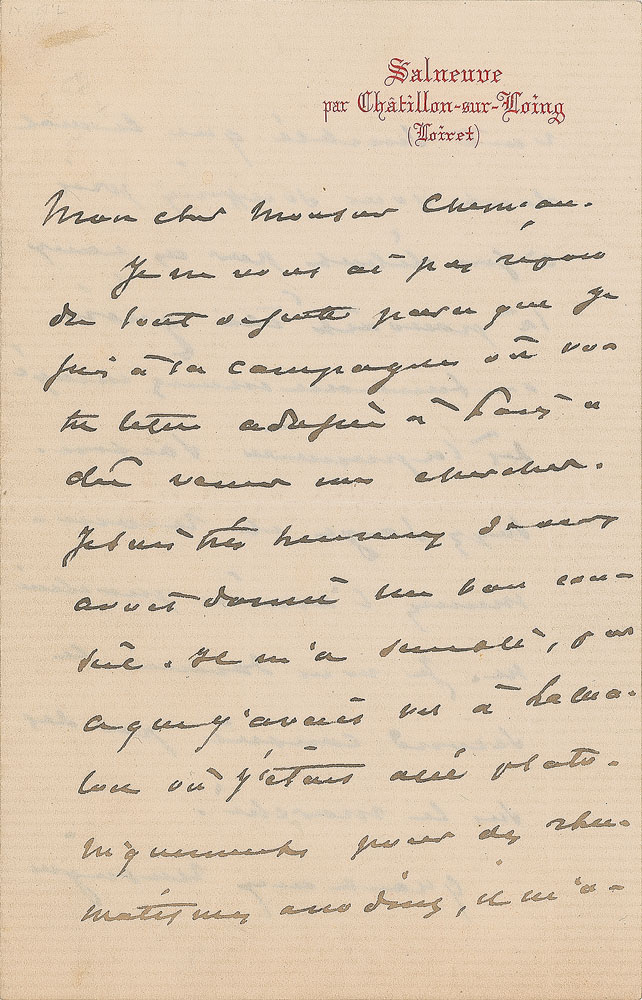 Salneuve
par Châtillon-sur-Loing
(Loiret)
Mon cher Monsieur Cheméau.
Je ne vous ai pas répon
du tout de suite parce que je
suis à la campagne où vo
tre lettre adressée à Paris a
dû venir me chercher.
Je suis très heureux de vous
avoir donné un bon con-
seil. Il m'a semblé, par
ce que j'avais vu à Lama-
lou où j'étais allé plato-
niquement pour des rhu-
matismes anodins, il m'a-